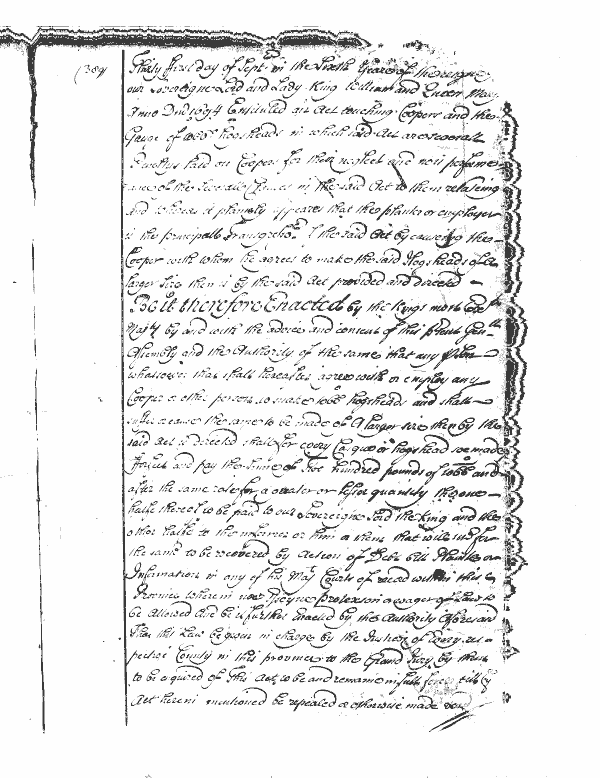 (384
Thirty first day of Sept: in the Sixth Yeare of the reigne
our Sovereigne Lord and Lady King William and Queen Mary
Anno Dni 1694 Entituled an Act touching Coopers and the
Gauge of tobb: hogsheads in which said Act are severall
Penaltys laid on Coopers for their neglect and non performe
ance of the severall Clauses in the said Act to them relateing
and whereas it plainely appeares that the planter or employer
is the principall transgressor of the said Act by causeing the
Cooper with whom he agrees to make the said Hogsheads of a
larger Size then is by the said Act provided and directed
Be it therefore Enacted by the Kings most Exce:
Maj:ty by and with the advice and consent of this present Gen:
Assembly and the Authority of the same that any
whatsoever that shall hereafter agree with or employ any
Cooper or other persons to make tobb: hogsheads and shall
suffer or cause the same to be made of a larger size then by the
said Act is directed shall for every Casque or hogshead soe made
forfeit and pay the Sume of five hundred pounds of tobb: and
after the same rate for a greater or lesser quantity the one
halfe thereof to be paid to our Sovereigne Lord the King and the
other halfe to the informer or him or them that will sue for
the same to be recovered by Action of Debt bill Plaint or
Information in any of his Maj:ts Courts of record within this
Province wherein noe Essoyne protection or wager of Law to
be Allowed And be it further Enacted by the Authority Aforesaid
that this Law be given in charge by the Justices of every res=
pective County in this province to the Grand Jury by them
to be inquired of This Act to be and remaine in full force till ye
Act herein mentioned be repealed or otherwise made void